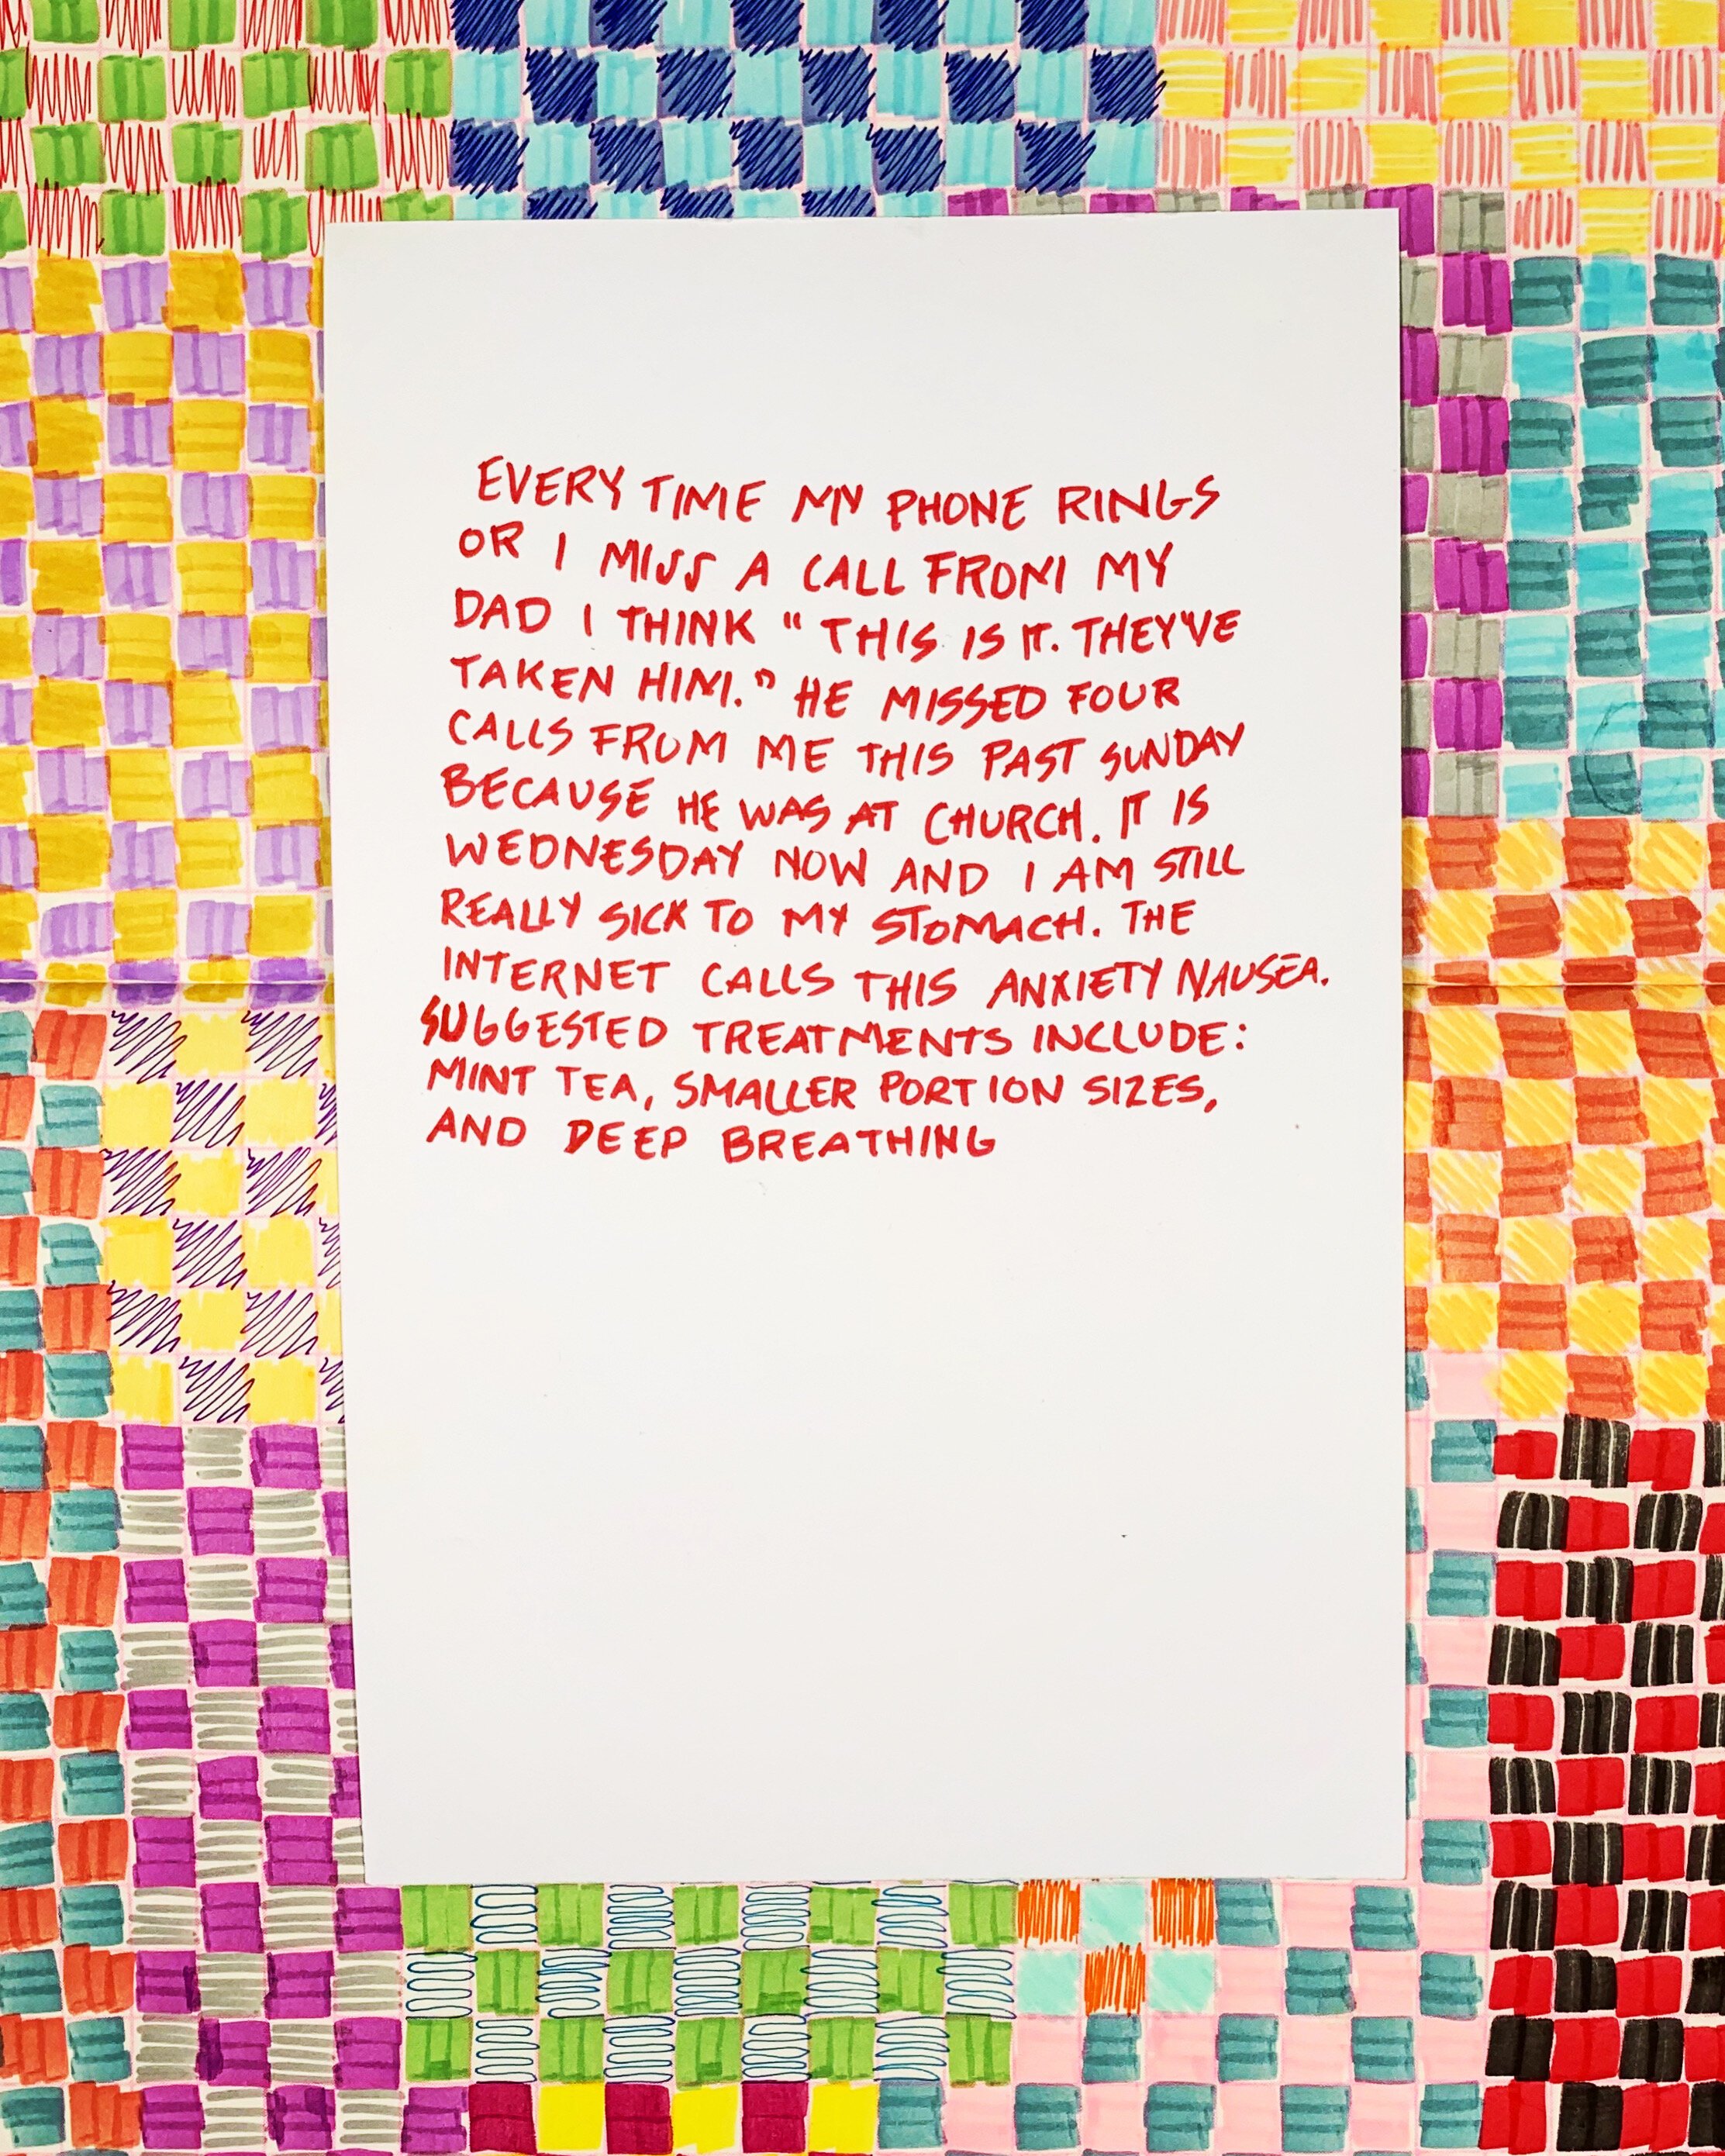 EVERY TIME MY PHONE RINGS
OR I MISS A CALL FROM MY
DAD I THINK "THIS IS IT. THEY'VE
TAKEN HIM." HE MISSED FOUR
CALLS FROM ME THIS PAST SUNDAY
BECAUSE HE WAS AT CHURCH. IT IS
WEDNESDAY NOW AND I AM STILL
REALLY SICK TO MY STOMACH. THE
INTERNET CALLS THIS ANXIETY NAUSEA.
SUGGESTED TREATMENTS INCLUDE:
MINT TEA, SMALLER PORTION SIZES,
AND DEEP BREATHING